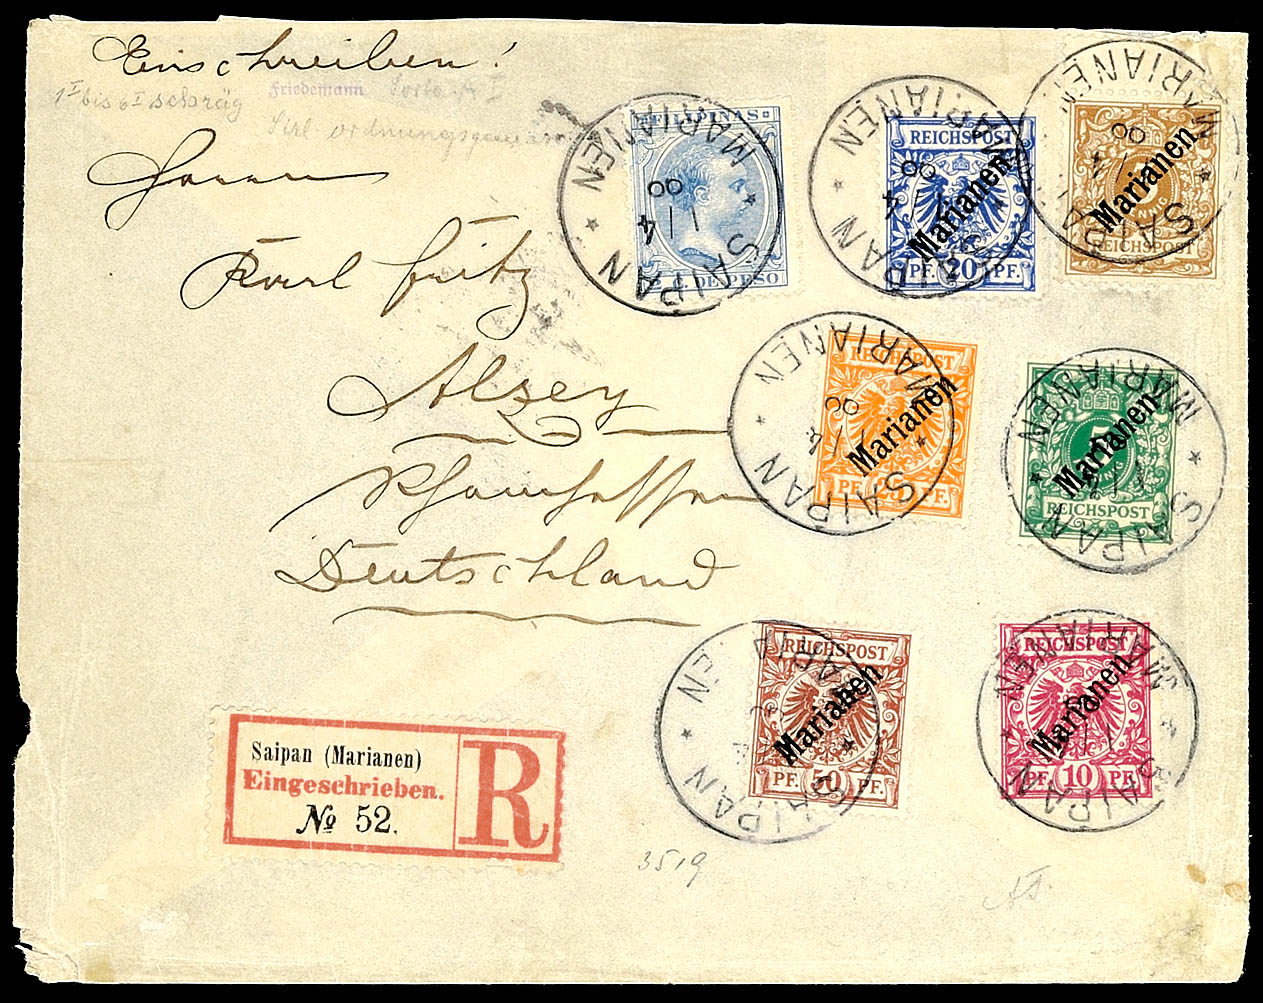 Einschreiben!
1I bis 6I schräg Friedemann
Herrn
Karl Fritz
Alzey
Rheinhessen
Deutschland
FILIPINAS
DE PESO
SAIPAN * MARIANEN *
1/4 00
REICHSPOST
PF. 20 PF.
Marianen
SAIPAN * MARIANEN *
1/4 00
REICHSPOST
Marianen
SAIPAN * MARIANEN *
1/4 00
REICHSPOST
PF. 25 PF.
Marianen
SAIPAN * MARIANEN *
1/4 00
5
REICHSPOST
Marianen
SAIPAN * MARIANEN *
REICHSPOST
PF. 50 PF.
Marianen
SAIPAN * MARIANEN *
REICHSPOST
PF. 10 PF.
Marianen
SAIPAN * MARIANEN *
Saipan (Marianen)
Eingeschrieben.
№ 52.
R
3519